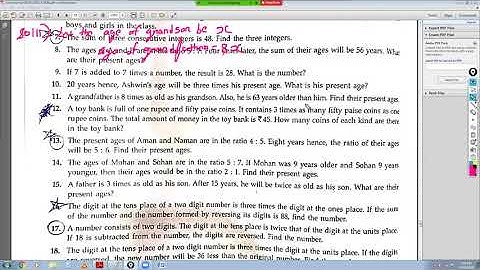 boys and girls in the class.
Soln 11→ Let the age of grandson be x
The sum of three consecutive integers is 48. Find the three integers.
age of grandfather = 8x
8. The ages later, the sum of their ages will be 56 years. What
are their present ages?
9. If 7 is added to 7 times a number, the result is 28. What is the number?
10. 20 years hence, Ashwin's age will be three times his present age. What is his present age?
11. A grandfather is 8 times as old as his grandson. Also, he is 63 years older than him. Find their present ages.
12. A toy bank is full of one rupee and fifty paise coins. It contains 3 times as many fifty paise coins as one
rupee coins. The total amount of money in the toy bank is ₹45. How many coins of each kind are there
in the toy bank?
13. The present ages of Aman and Naman are in the ratio 4 : 5. Eight years hence, the ratio of their ages
will be 5 : 6. Find their present ages.
14. The ages of Mohan and Sohan are in the ratio 5 : 7. If Mohan was 9 years older and Sohan 9 years
younger, then their ages would be in the ratio 2 : 1. Find their present ages.
15. A father is 3 times as old as his son. After 15 years, he will be twice as old as his son. What are their
present ages?
The digit at the tens place of a two digit number is three times the digit at the ones place. If the sum
of the number and the number formed by reversing its digits is 88, find the number.
17. A number consists of two digits. The digit at the tens place is twice that of the digit at the units place.
If 18 is subtracted from the number, the digits are reversed. Find the number.
18. The digit at the tens place of a two digit number is three times the digit at the units place. If the digits
are reversed, the new number will be 36 less than the original number. Find the